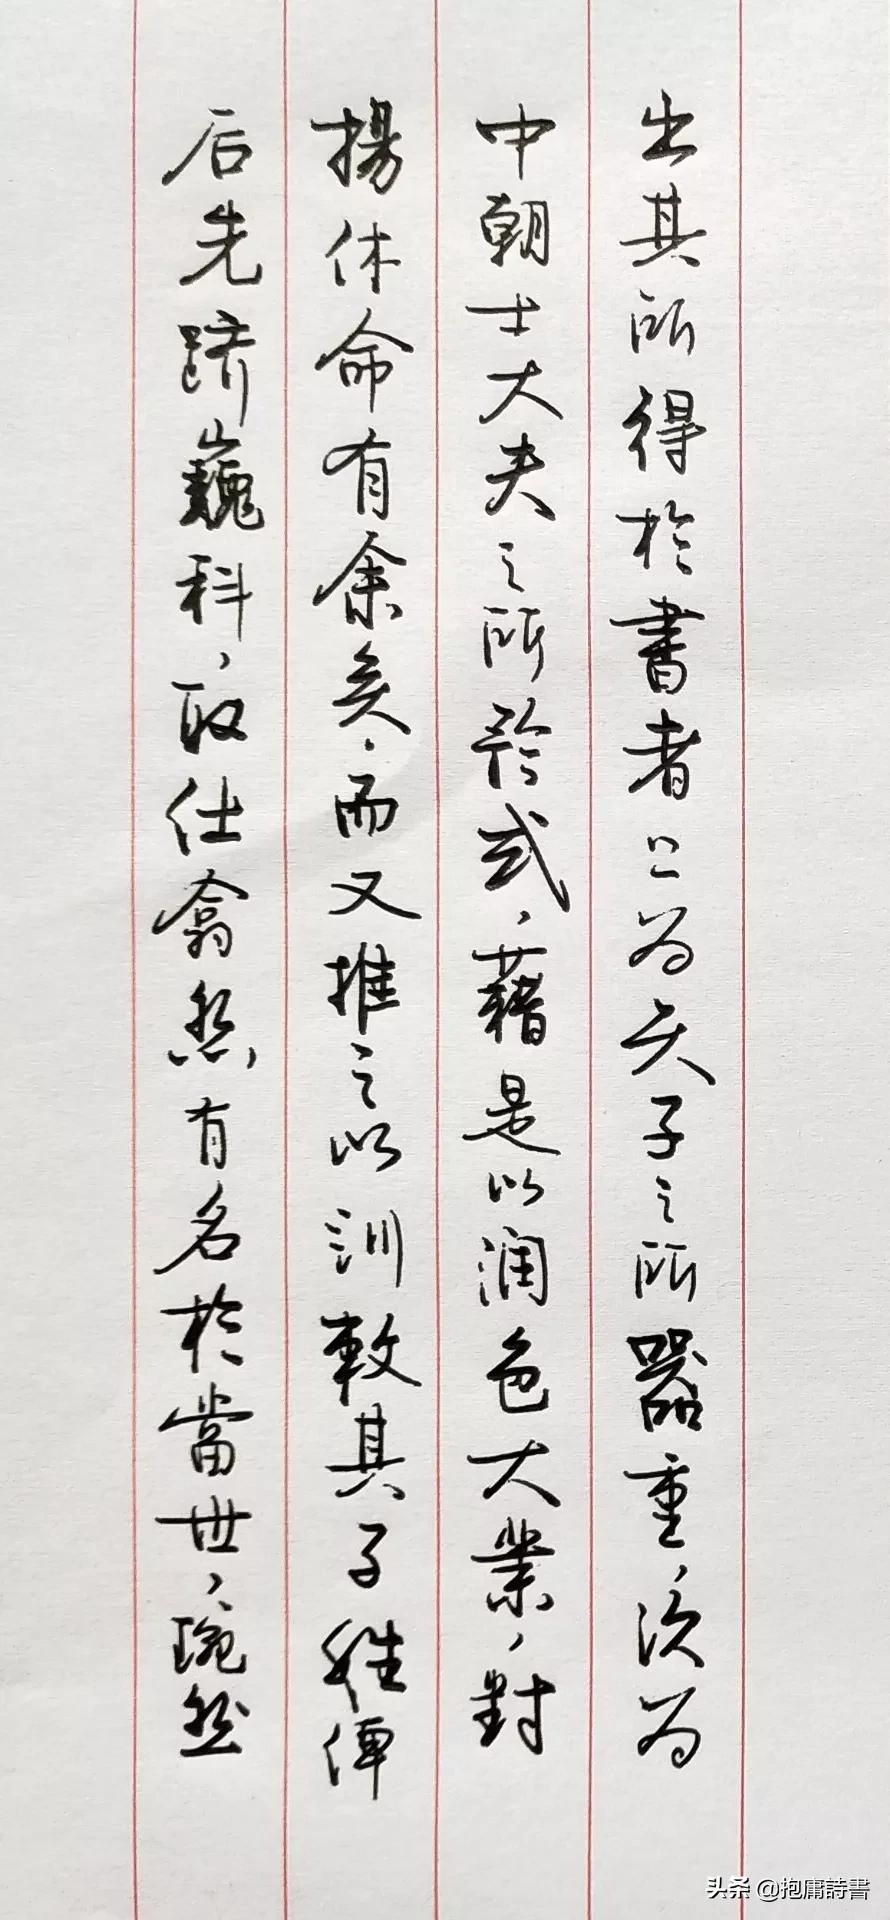 出其所得於書者上为天子之所器重，次为
中朝士大夫之所矜式，藉是以润色大業，對
揚休命有余矣，而又推之以訓教其子姪俾
后先跻巍科，取仕翕然有名於當世，琬然
头条 @抱庸詩書